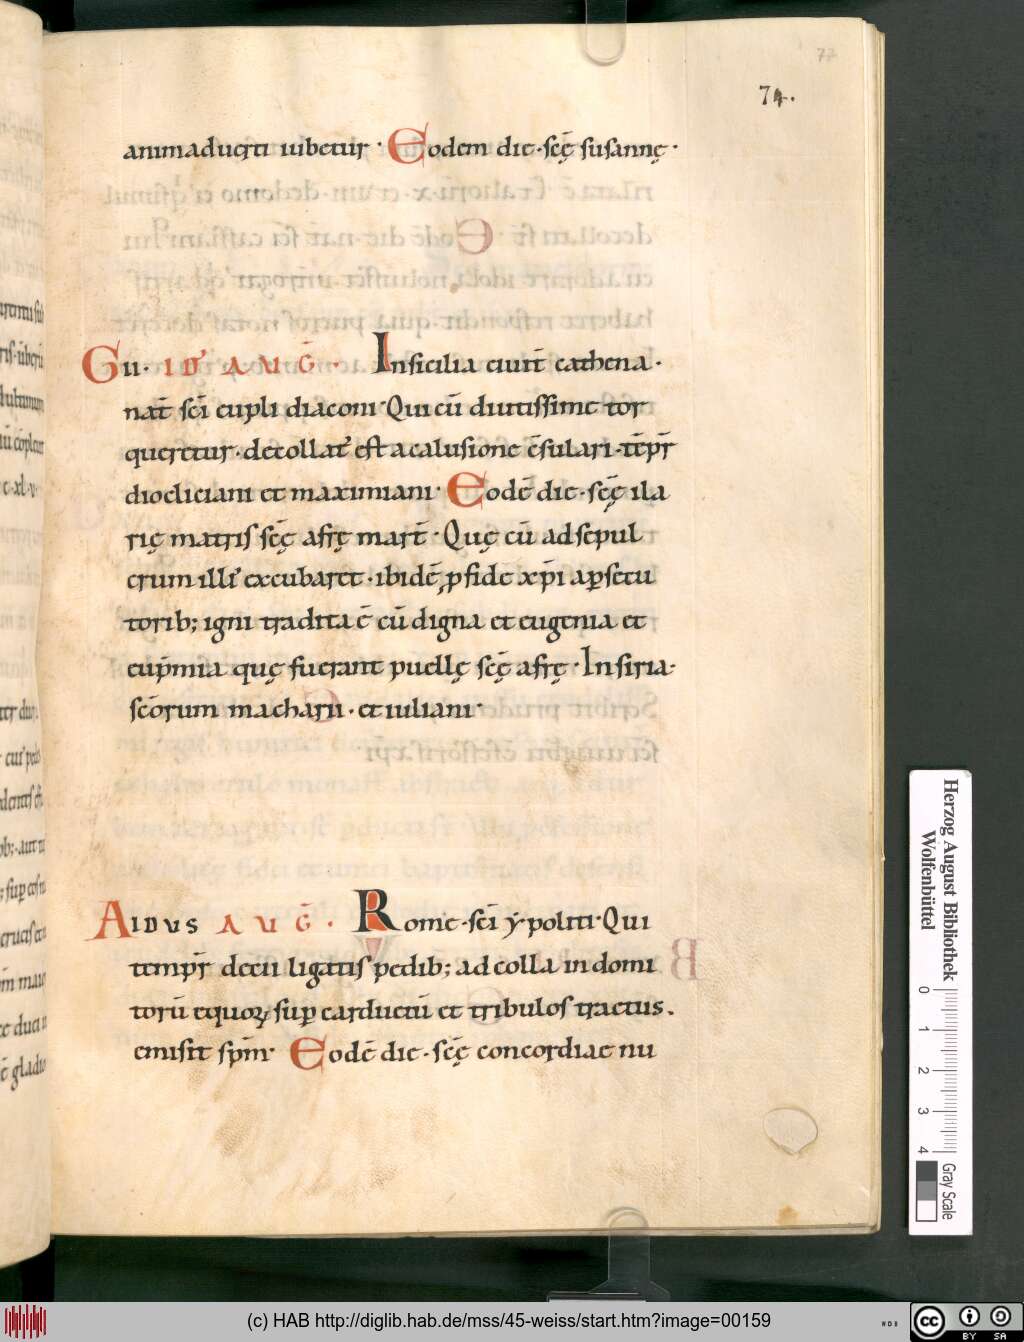 77
74.
animaduerti iubetur · Eodem die · scē susannę ·
G II · ID̄ AUḠ · In sicilia ciuit̄ cathena ·
nat̄ scī eupli diaconi · Qui cū diutissime tor
queretur · decollat' est a calusiono c̄sulari · tēpr̄
diocliciani et maximiani · Eodē die · scę̄ ila
rię matris scę̄ afrę mart̄ · Quę cū ad sepul
crum illi' excubaret · ibidē p̱ fide xp̄i a p̱secu
torib; igni tradita ē cū digna et eugenia et
eup̄mia quę fuerant puellę scę̄ afrę · In siria ·
scōrum macharii · et iuliani ·
A IDUS AUḠ · Rome · scī ypoliti · Qui
tempr̄ decii ligatis pedib; ad colla indomi
torū equoꝝ sup̱ carductū et tribulos tractus .
emisit sp̄m · Eodē die · scę̄ concordiae nu
Herzog August Bibliothek
Wolfenbüttel
0 1 2 3 4
Gray Scale
(c) HAB http://diglib.hab.de/mss/45-weiss/start.htm?image=00159
cc BY SA